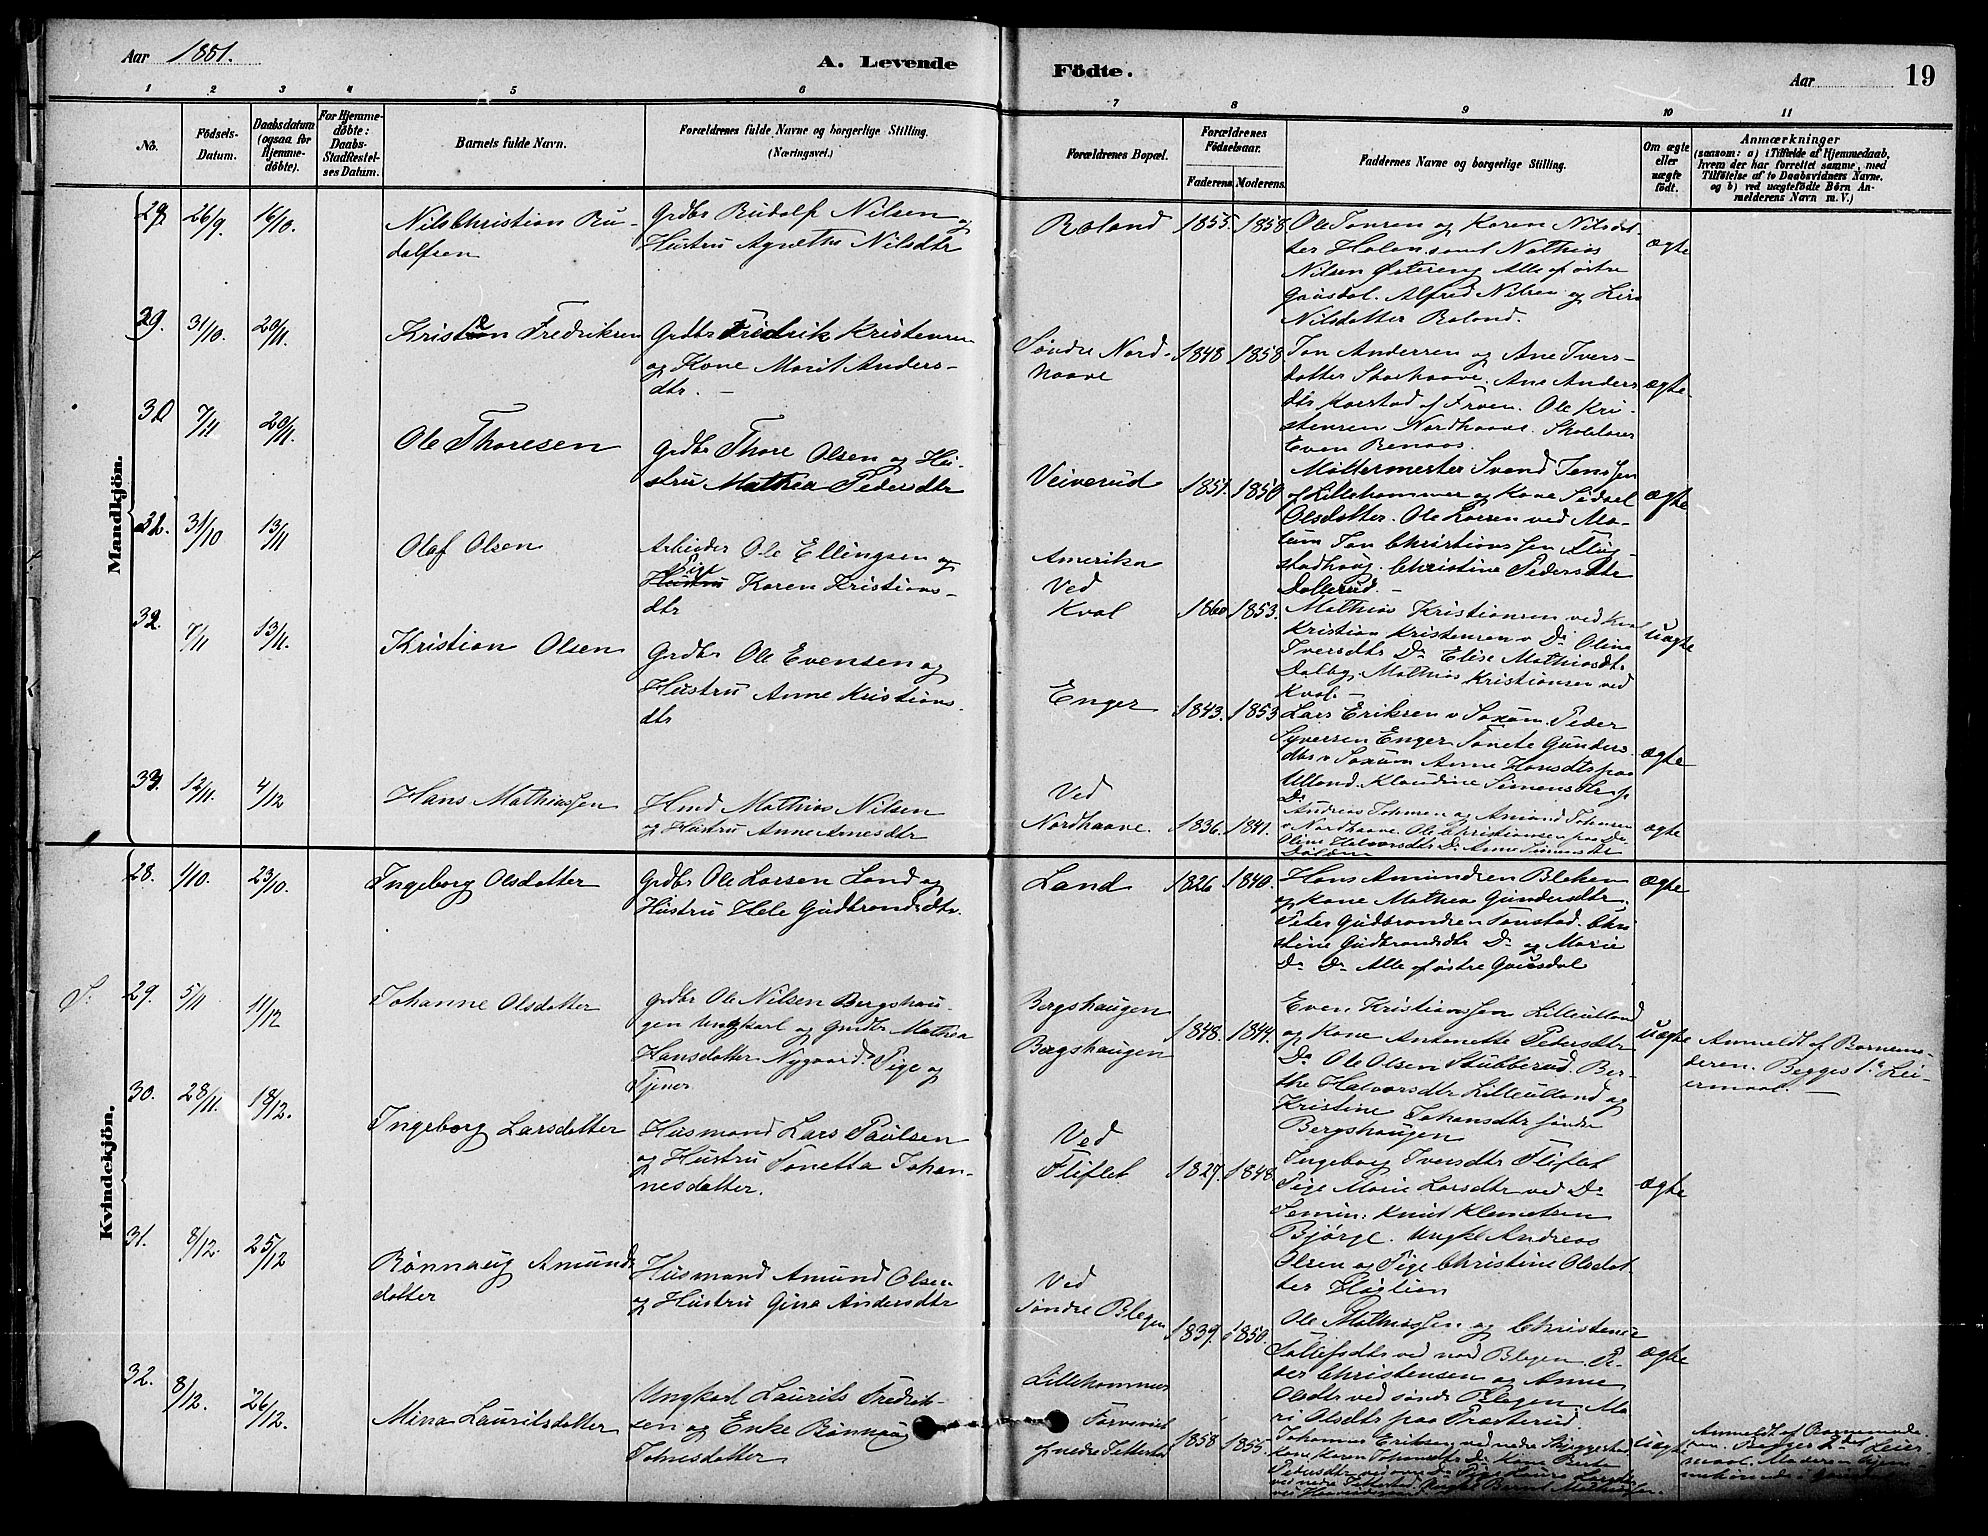 Aar 1881.
A. Levende
Födte.
Aar
19
1 2 3 4 5 6 7 8 9 10 11
No.
Födsels-
Datum.
Daabsdatum
(ogsaa for
Hjemme-
döbte).
For Hjemme-
döbte:
Daabs-
Stadfæstel-
ses Datum.
Barnets fulde Navn.
Forældrenes fulde Navne og borgerlige Stilling.
(Næringsvei.)
Forældrenes Bopæl.
Forældrenes
Födselsaar.
Faderens Moderens
Faddernes Navne og borgerlige Stilling.
Om ægte
eller
uægte
født.
Anmærkninger
(saasom: a) i Tilfælde af Hjemmedaab,
hvem der har forrettet samme, med
Tilföielse af to Daabsvidners Navne,
og b) ved uægtefödte Börn An-
melderens Navn m. V.)
Mandkjön.
26/9 16/10
Nils Christian Ru-
dolfsen
Grdbr Rudolf Nilsen og
Hustru Agnethe Nilsdtr
Roland 1855 1858
Ole Jonsen og Karen Nilsdat-
ter Holen samt Mathias
Nilsen Østereng Alle af østre
Gausdal. Alfred Nilsen og
Nilsdatter Roland.
ægte
29. 31/10 20/11
Fredriksen
Grdbr Fredrik Kristensen
og Kone Marit Anders-
dtr. -
Søndre Nord-
haave
1848 1858
Jon Andersen og Ane Ivers-
datter Storhaave. Ane Anders
dtr af Froen. Ole Kri-
stensen Nordhaave. Skolelærer
Even
ægte
30 7/11 20/11
Ole Thoresen
Grdbr Thore Olsen og Hu-
stru Mathea Pedersdtr
Veiverud 1851. 1850
Svend Jenssen
af Lillehammer og Kone Sidsel
Olsdatter. Ole Larsen ved
Jon Christianssen
Christine Pedersdtr
ægte
31/10 13/11
Olaf Olsen
Arbeider Ole Ellingsen og
Pige
Hustru Karen Kristians-
dtr
Amerika
Ved
Kval
1860 1853.
Mathias Kristiansen ved
Kristian Kristensen v Do Olina
Iversdtr Do Elise Mathiasdtr
Dalby. Mathias Kristiansen ved
Kval. -
uægte
32. 7/11 13/11
Kristian Olsen
Grdbr Ole Evensen og
Hustru Anne Kristians
dtr
Enger 1843. 1853
Lars Eriksen v Peder
Syversen Enger Tonete Gunders-
dtr v Anne Hansdtr paa
Ulland. Klaudine Simensdtr p
Do
ægte
33. 12/11 4/12
Hans Mathiassen
Hmd Mathias Nilsen
og Hustru Anne Arnesdtr
Ved
Nordhaave. 1836. 1841.
Andreas Johnsen og Amund Johnsen
v Nordhaave. Ole Christiansen paa Do
Oline Halvorsdtr Do Anne Simensdtr
ægte
Kvindekjön.
28. 1/10. 23/10
Ingeborg Olsdatter
Grdbr Ole Larsen Land og
Hustru Hele Gudbrandsdtr.
Land 1826 1840.
Hans Amundsen Bleken
og Kone Mathea Gundersdtr.
Peter Gudbrandsen Tonstad. Chri
stine Gudbrandsdtr Do og Marie
Do Do Alle af østre Gausdal
ægte
29. 5/11 11/12
Johanne Olsdatter
Grdbr Ole Nilsen Bergshau-
gen Ungkarl og Mathea
Hansdatter Nygaard. Pige og
Tjener
Bergshaugen
Bergshaugen
1848. 1844.
Even Kristianssen Lilleulland
og Kone Antonette Pedersdtr
Do Ole Olsen Stubberud. Ber-
the Halvorsdtr Lilleulland og
Kristine Johansdtr søndre
Bergshaugen
uægte
Anmeldt af Barnemo-
deren. Begges 1ste Lei-
ermaal. -
30. 28/11 18/12.
Ingeborg Larsdatter
Husmand Lars Paulsen
og Hustru Tonetta Johan-
nesdatter.
Ved
Fliflet
1827. 1848.
Ingeborg Iversdtr Fliflet
Pige Marie Larsdtr ved Do
Semin: Knut Klemetsen
Bjørge. Ungk. Andreas
Olsen og Pige Christine Olsdat-
ter
ægte
31. 8/12. 25/12
Rønnaug Amunds
datter
Husmand Amund Olsen
og Hustru Gina Andersdtr
Ved
søndre Blegen
1839. 1850.
Ole Mathiassen og Christence
Tollefsdtr ved nord Blegen. Pe-
der Christensen og Anne
Olsdtr ved søndr Blegen. Ma-
ri Olsdtr paa Præsterud.
ægte
32. 8/12. 26/12.
Mina Lauritsdatter
Ungkarl Laurits Fredrik-
sen og Enke Rønnaug
Johnsdatter
Lillehammer
1858 1855.
Johannes Eriksen ved nedre
uægte
Anmeldt af Barnemode
ren.